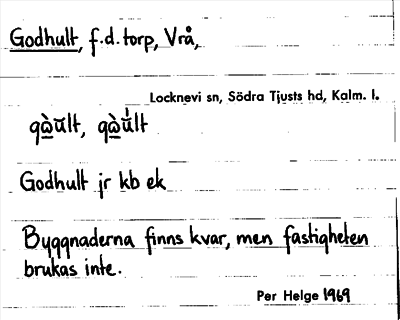 Godhult, f.d. torp, Vrå,
Locknevi sn, Södra Tjusts hd, Kalm. l.
Godhult jr kb ek
Byggnaderna finns kvar, men fastigheten
brukas inte.
Per Helge 1969